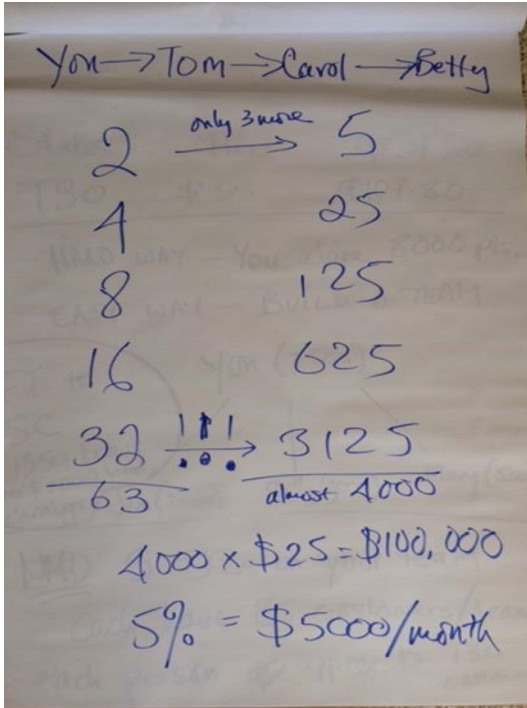 You → Tom → Carol → Betty
only 3 more
2 → 5
4 25
8 125
16 625
32 !!! → 3125
63 almost 4000
4000 x $25 = $100,000
5% = $5000/month